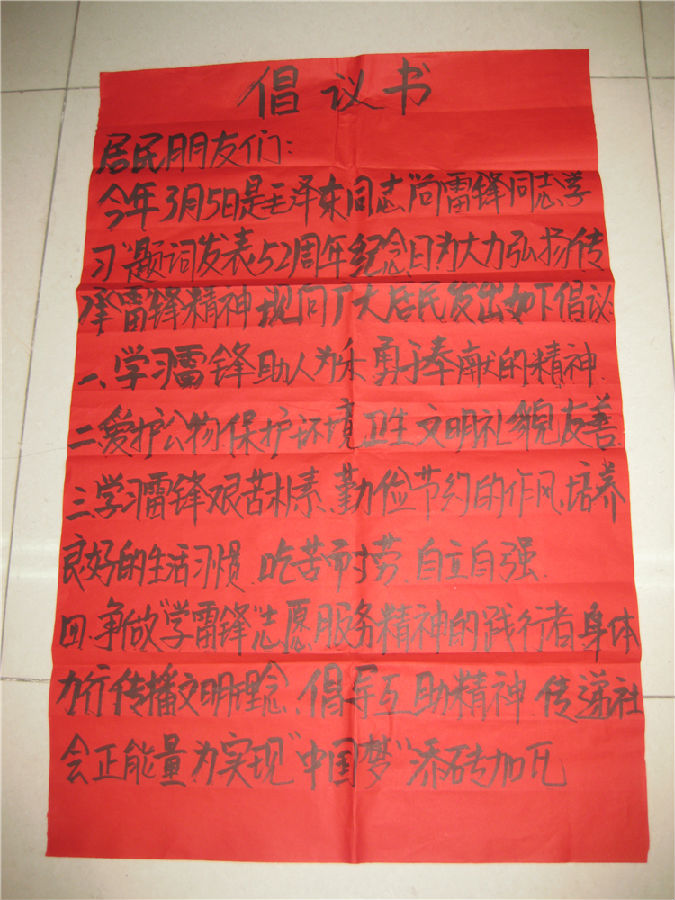 倡议书
居民朋友们:
今年3月5日是毛泽东同志"向雷锋同志学
习"题词发表52周年纪念日为大力弘扬传
承雷锋精神现向广大居民发出如下倡议:
一、学习雷锋助人为乐勇于奉献的精神.
二爱护公物保护环境卫生文明礼貌友善.
三学习雷锋艰苦朴素、勤俭节约的作风、培养
良好的生活习惯、吃苦而寸劳、自立自强.
四、争做"学雷锋"志愿服务精神的践行者身体
力行传播文明理念、倡导互助精神、传递社
会正能量为实现"中国梦"添砖加瓦